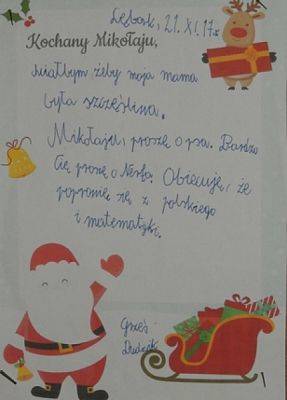 Lębork, 21.XI.17r.
Kochany Mikołaju,
miałbym żeby moja mama
była szczęśliwa.
Mikołaju, proszę o psa. Bardzo
Cię proszę o Nerfa. Obiecuję, że
poprawię się z polskiego
i matematyki.
Grześ
Dudzik